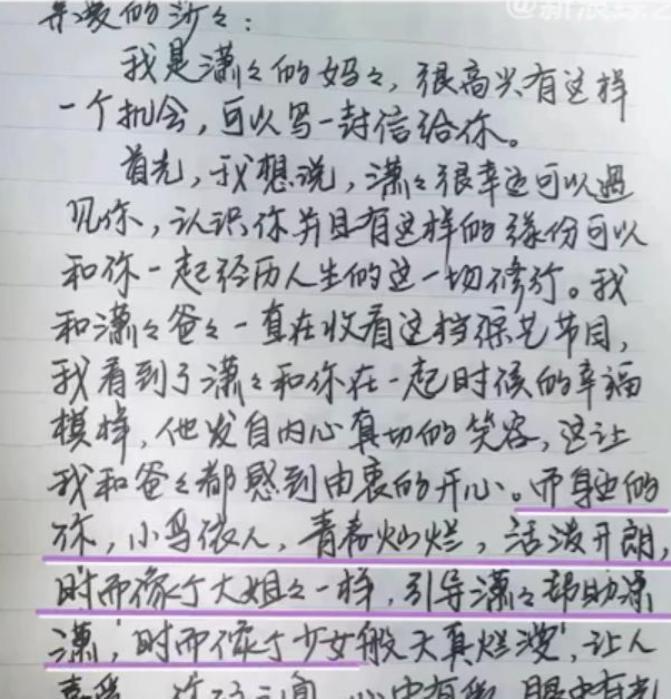 @新浪综艺
亲爱的沙々：
我是潇々的妈々，很高兴有这样
一个机会，可以写一封信给你。
首先，我想说，潇々很幸运可以遇
见你，认识你并且有这样的缘份可以
和你一起经历人生的这一场修行。我
和潇々爸々一直在收看这档综艺节目，
我看到了潇々和你在一起时候的幸福
模样，他发自内心真切的笑容，这让
我和爸々都感到由衷的开心。而身边的
你，小鸟依人，青春灿烂，活泼开朗，
时而像个大姐々一样，引导潇々帮助潇
潇，时而像个少女般天真烂漫，让人
心中有爱，眼中有光